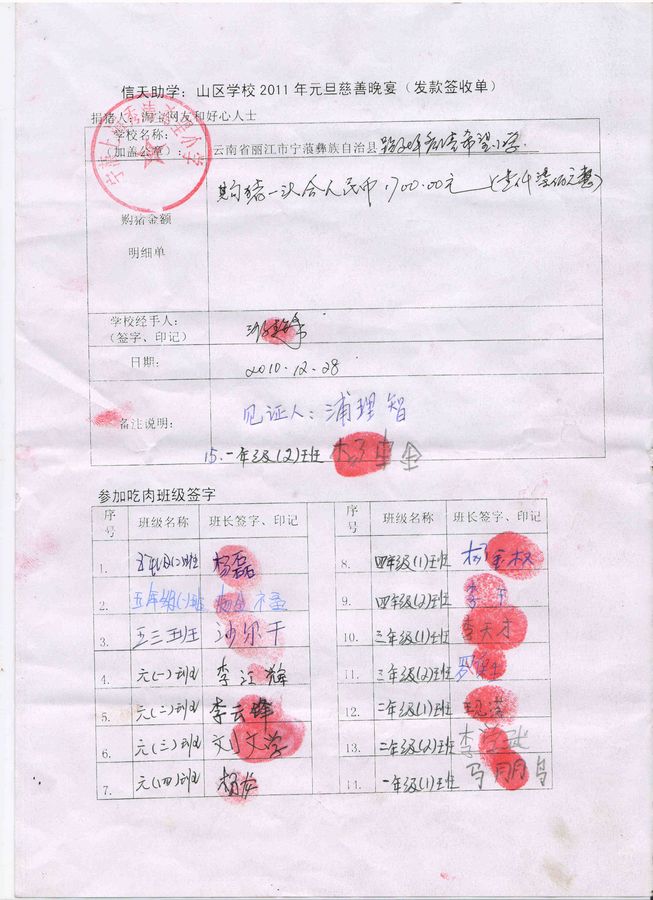 信天助学：山区学校 2011 年元旦慈善晚宴（发款签收单）
捐猪人：淘宝网友和好心人士
学校名称：
（加盖公章）：
云南省丽江市宁蒗彝族自治县 希望小学
购猪金额
明细单
购猪一头合人民币1700.00元（壹仟柒佰元整）
学校经手人：
（签字、印记）
日期：
2010.12.28
备注说明：
见证人：浦理智
15.一年级(2)班
参加吃肉班级签字
序号 班级名称 班长签字、印记
1. 杨磊
2. 五年级(二)班
3. 五三班 沙尔干
4. 元(一)班 李江辉
5. 元(二)班 李云锋
6. 元(三)班 刘文学
7. 元(四)班 杨龙
序号 班级名称 班长签字、印记
8. 四年级(1)班 杨金权
9. 四年级(2)班
10. 三年级(1)班 李天才
11. 三年级(2)班
12. 二年级(1)班
13. 二年级(2)班
14. 一年级(1)班 马明鸟